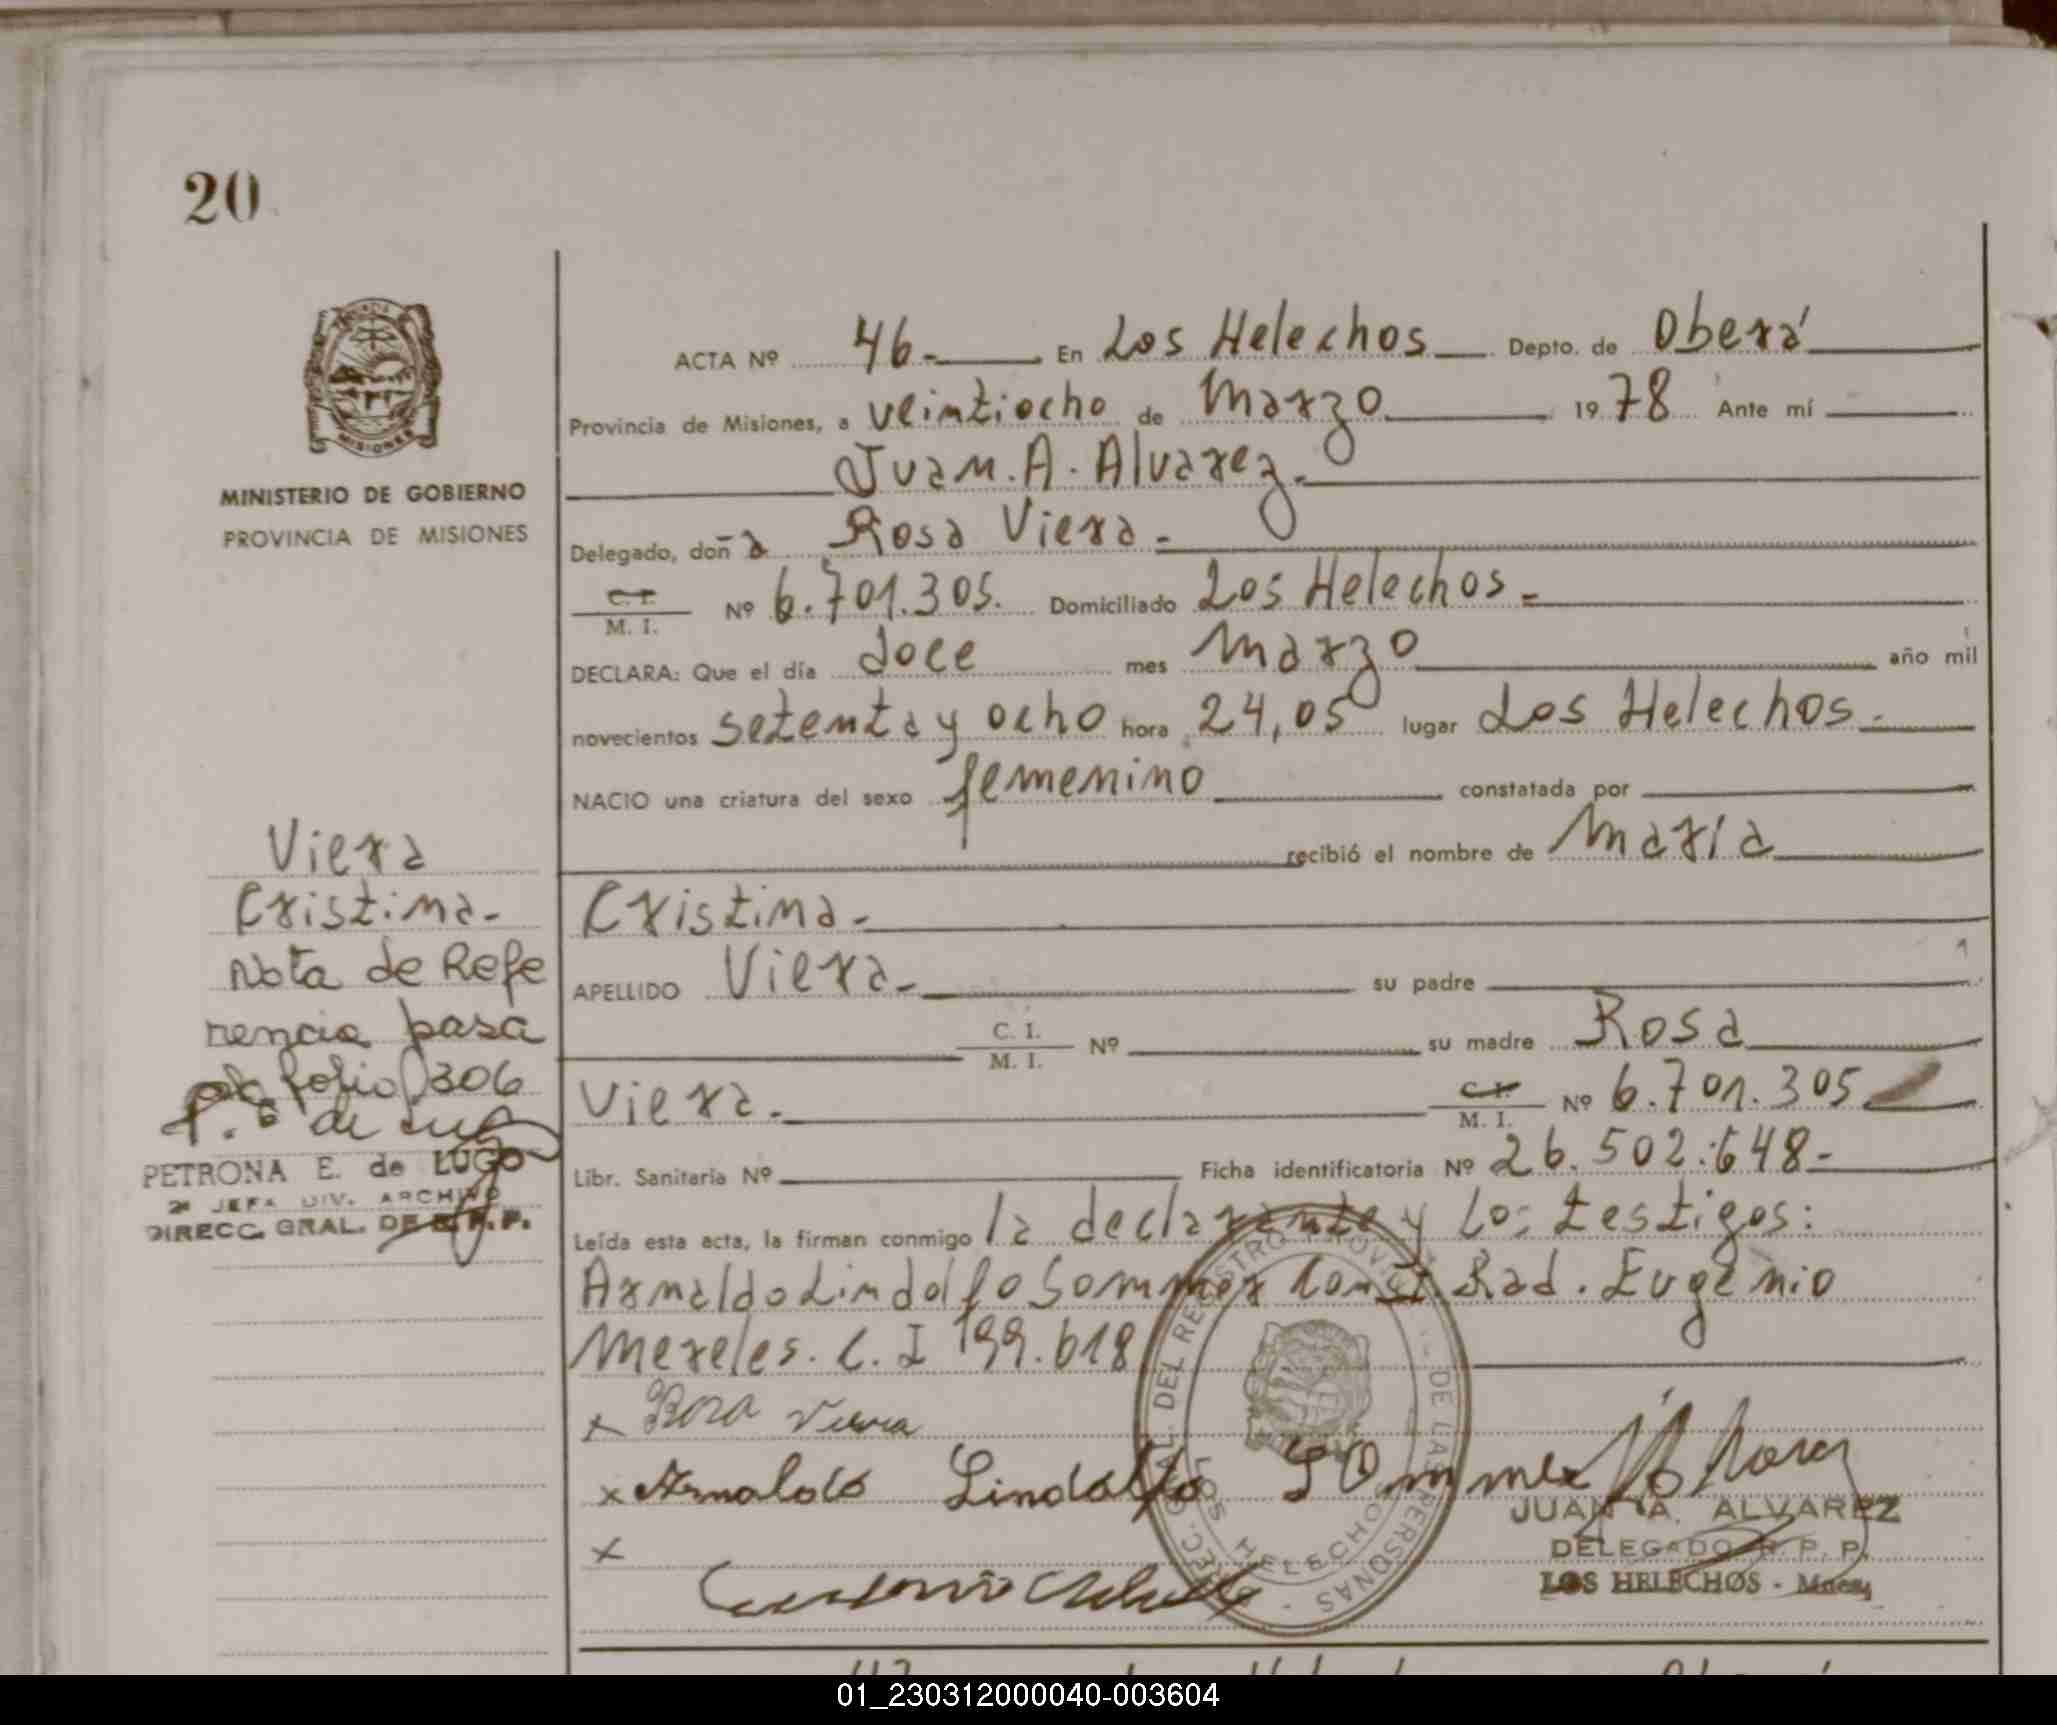 20
MISIONES
MINISTERIO DE GOBIERNO
PROVINCIA DE MISIONES
ACTA Nº 46- En Los Helechos Depto. de Oberá
Provincia de Misiones, a veintiocho de Marzo 1978 Ante mí
Juan. A. Alvarez.
Delegado, doña Rosa Viera-
C. I. M. I. Nº 6.701.305. Domiciliado Los Helechos-
DECLARA: Que el día doce mes Marzo año mil
novecientos setenta y ocho hora 24,05 lugar Los Helechos-
NACIO una criatura del sexo femenino constatada por
recibió el nombre de María
Cristina-
APELLIDO Viera- su padre
C. I. M. I. Nº su madre Rosa
Viera. C. I. M. I. Nº 6.701.305
Libr. Sanitaria Nº Ficha identificatoria Nº 26.502.648-
Leída esta acta, la firman conmigo la declarante y los testigos:
Arnaldo Lindolfo Sommer Const. Rad. Eugenio
Mereles. C. I 199.618
x Rosa Viera
x Arnaldo Lindolfo Sommer
x
JUAN A. ALVAREZ
DELEGADO R. P. P.
LOS HELECHOS - Mnes.
GRAL. DEL REGISTRO PROVINCIAL DE LAS PERSONAS
LOS HELECHOS
Viera
Cristina-
Nota de Refe
rencia pasa
folio 306
PETRONA E. de LUGO
2ª JEFA DIV. ARCHIVO
DIRECC. GRAL. DE R.P.P.
01_230312000040-003604